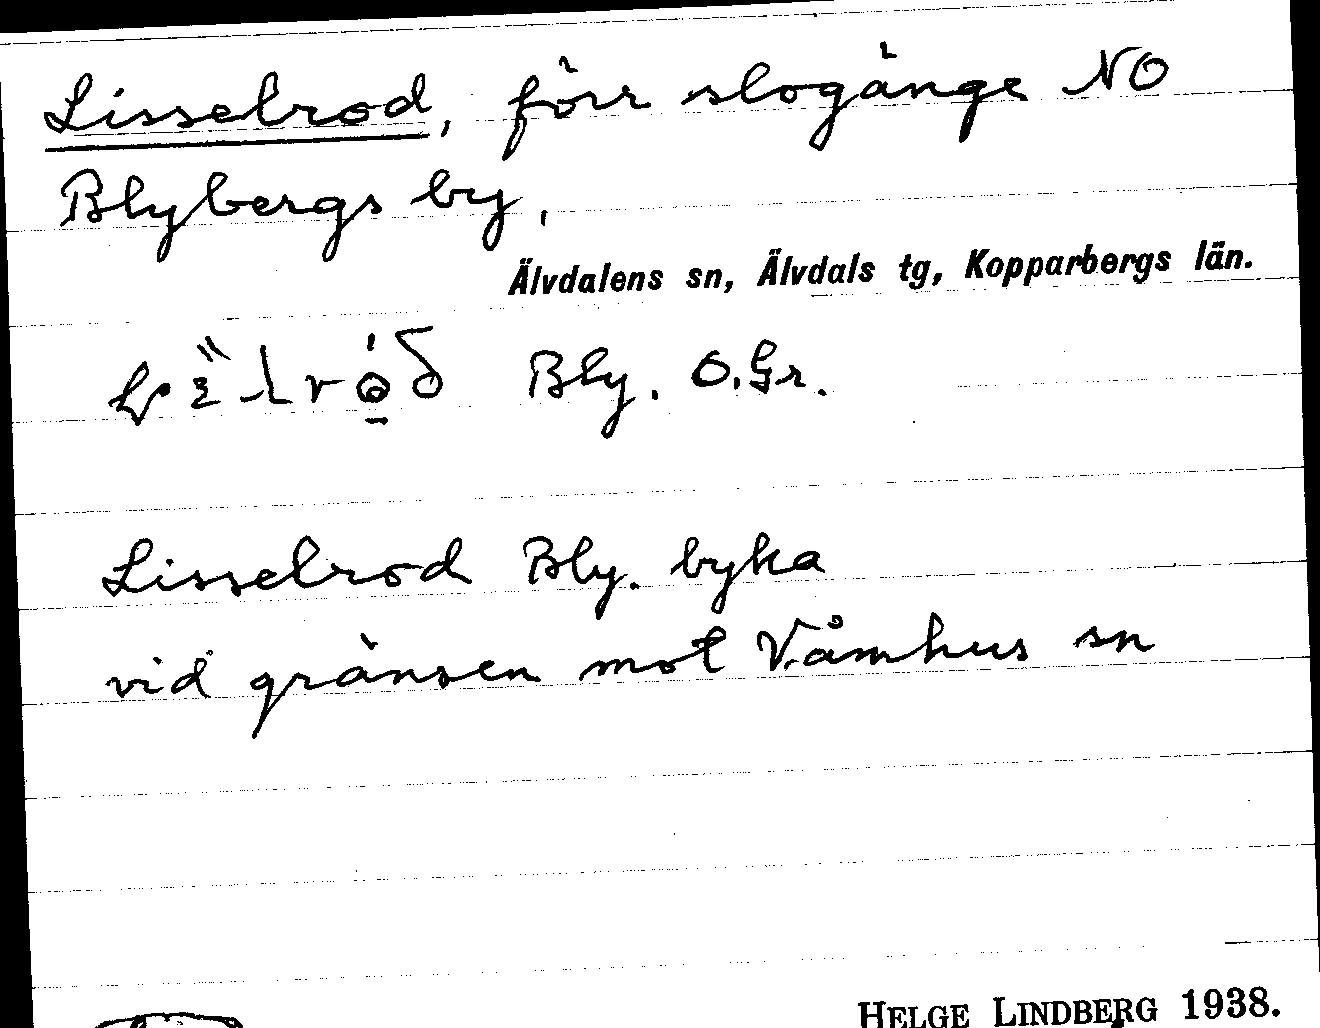 Lisselrod, förr slogänge NO
Blybergs by,
Älvdalens sn, Älvdals tg, Kopparbergs län.
Bly. O. Gr.
Lisselrod Bly. byka
vid gränsen mot Våmhus sn
HELGE LINDBERG 1938.